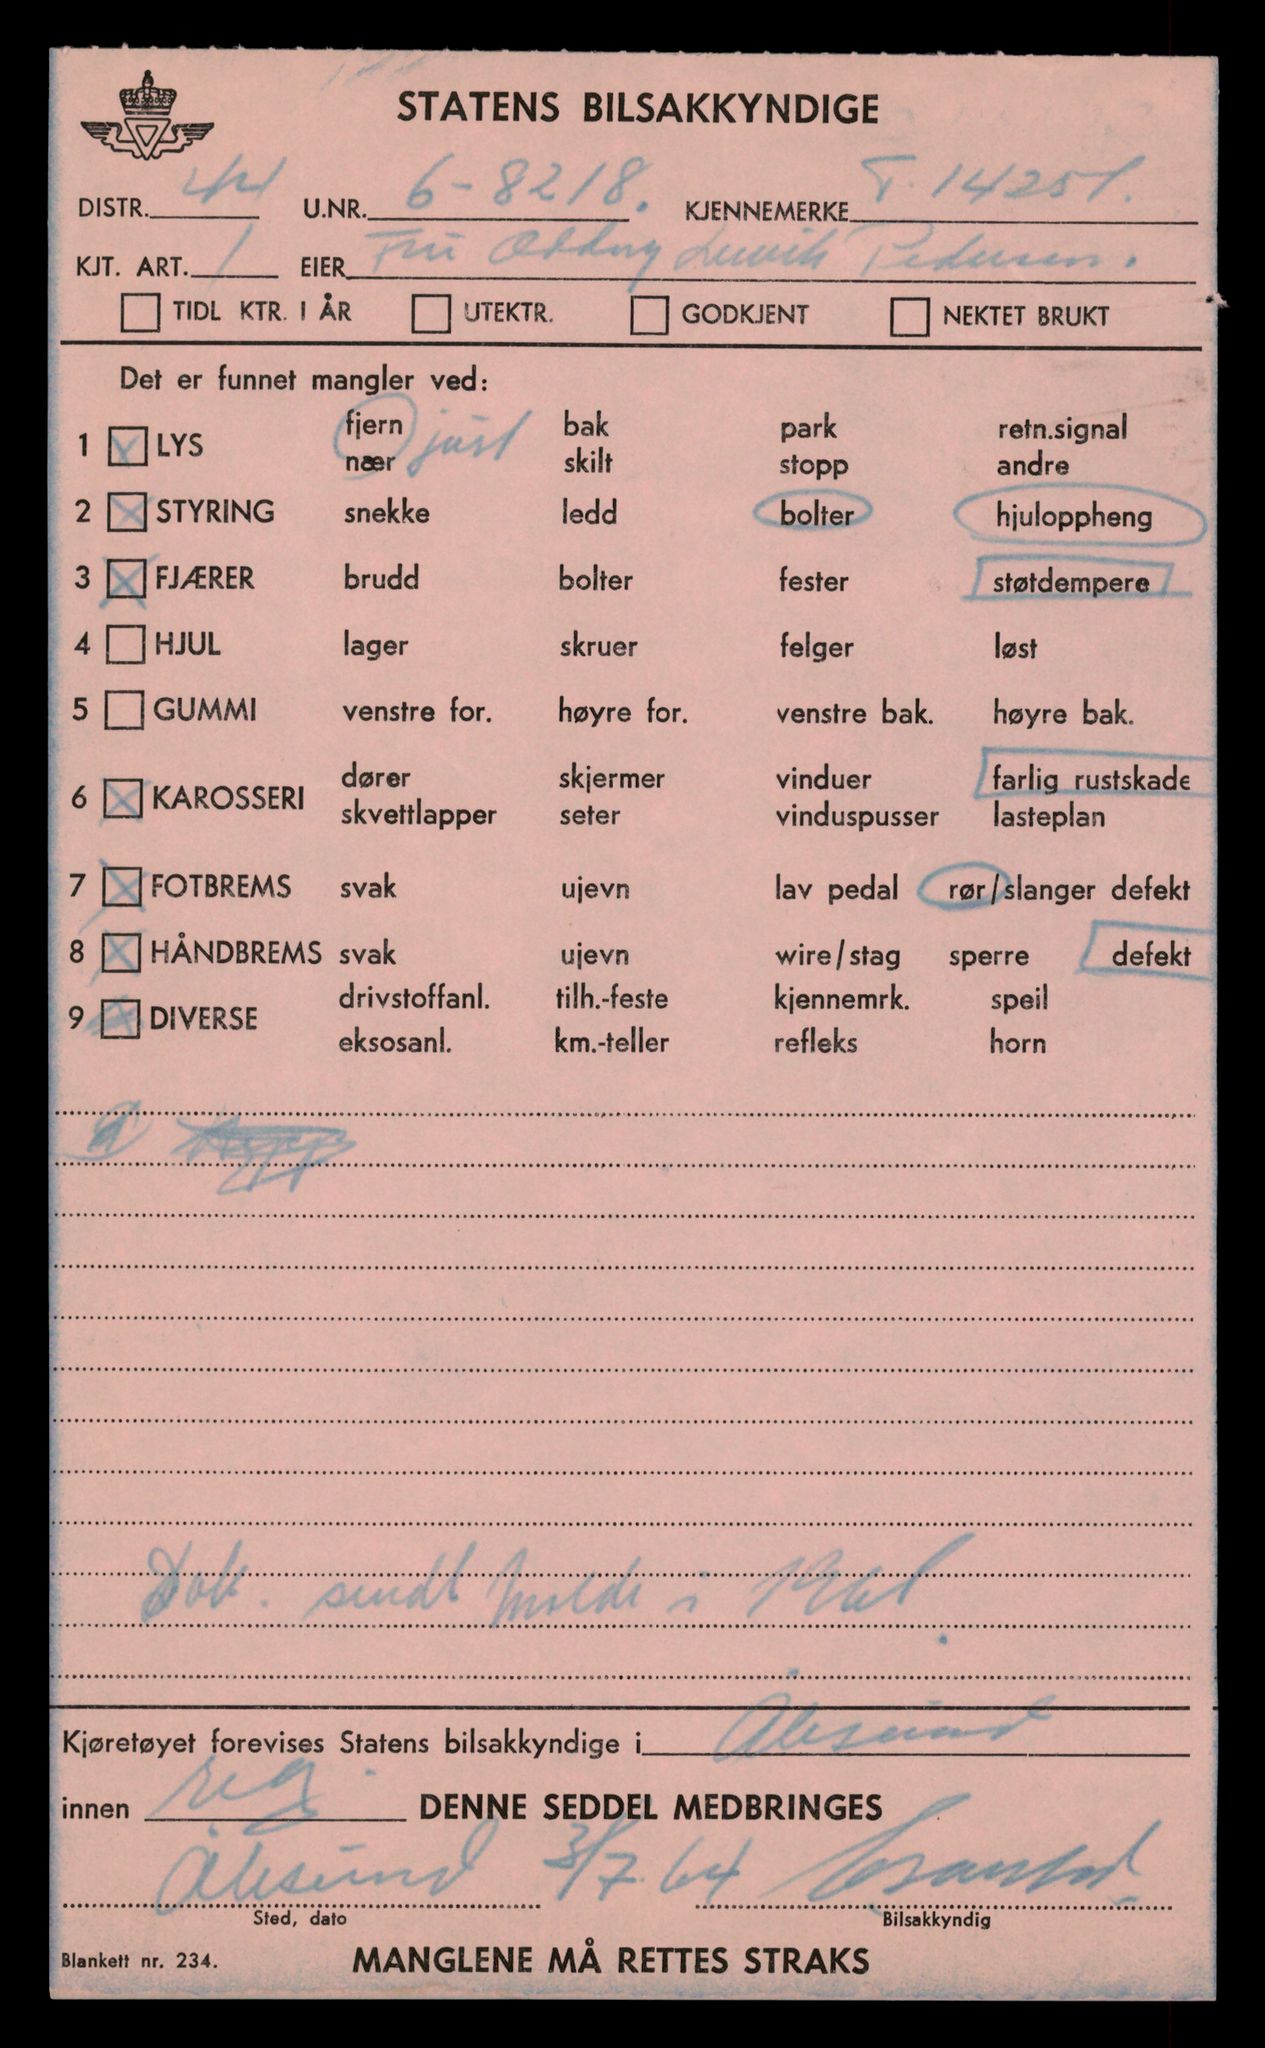 STATENS BILSAKKYNDIGE
DISTR. 44 U.NR. 6-8218. KJENNEMERKE T. 14251.
KJT. ART. 1 EIER Fru Oddny Pedersen.
TIDL KTR. I ÅR UTEKTR. GODKJENT NEKTET BRUKT
Det er funnet mangler ved:
fjern just bak park retn.signal
1 LYS
nær skilt stopp andre
2 STYRING snekke ledd bolter hjuloppheng
3 FJÆRER brudd bolter fester støtdempere
4 HJUL lager skruer felger løst
5 GUMMI venstre for. høyre for. venstre bak. høyre bak.
dører skjermer vinduer farlig rustskade
6 KAROSSERI
skvettlapper seter vinduspusser lasteplan
7 FOTBREMS svak ujevn lav pedal rør/slanger defekt
8 HÅNDBREMS svak ujevn wire/stag sperre defekt
drivstoffanl. tilh.-feste kjennemrk. speil
9 DIVERSE
eksosanl. km.-teller refleks horn
Dok. sendt Molde i
Kjøretøyet forevises Statens bilsakkyndige i Ålesund
innen reg. DENNE SEDDEL MEDBRINGES
Ålesund 3/7.64
Sted, dato Bilsakkyndig
Blankett nr. 234. MANGLENE MÅ RETTES STRAKS